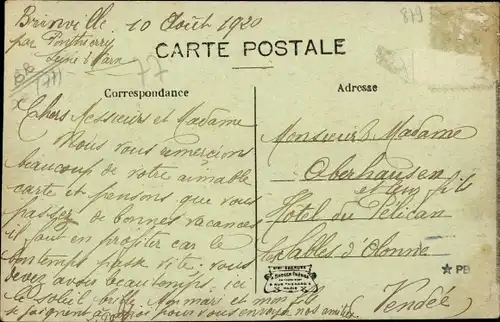 Brinville 10 Août 1920
par Ponthierry
Seine & Marn
819
77
(77)
CARTE POSTALE
Correspondance
Adresse
Chers Messieurs et Madame
Nous vous remercions
beaucoup de votre aimable
carte et pensons que vous
passez de bonnes vacances
il faut en profiter car le
bon temps passe vite. vous
devez avoir beau temps, ici
le soleil brille. Mon mari et mon fils
se joignent à moi pour vous envoyer nos amitiés
Monsieur & Madame
Oberhausen
et leur fils
Hôtel du Pélican
les Sables d'Olonne
Vendée
★ PB